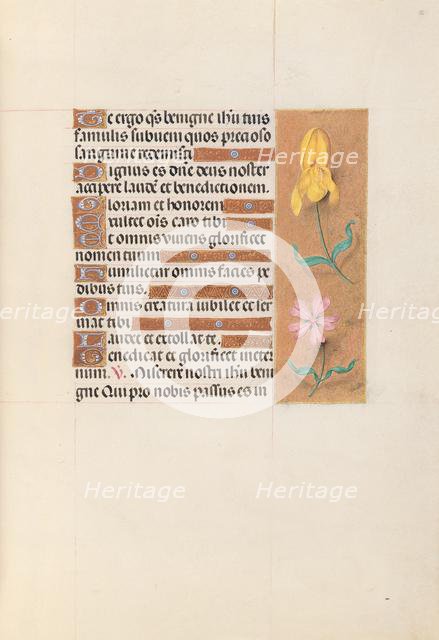 Te ergo qs benigne ihu tuis
famulis subueni quos precioso
sanguine redemisti
Dignus es dñe deus noster
accipere laudē et benedictionem.
Gloriam et honorem
Exultet oīs caro tibi
Et omnis viuens glorificet
nomen tuum
Humilietur omnis facies pe
dibus tuis.
Omnis creatura iubilet et ser
uiat tibi
Laudet et extollat te.
Benedicat et glorificet in eter
num. V. Miserere nostri ihu beni
gne Qui pro nobis passus es in
Heritage Heritage Heritage
Heritage Heritage
Heritage
Heritage Heritage